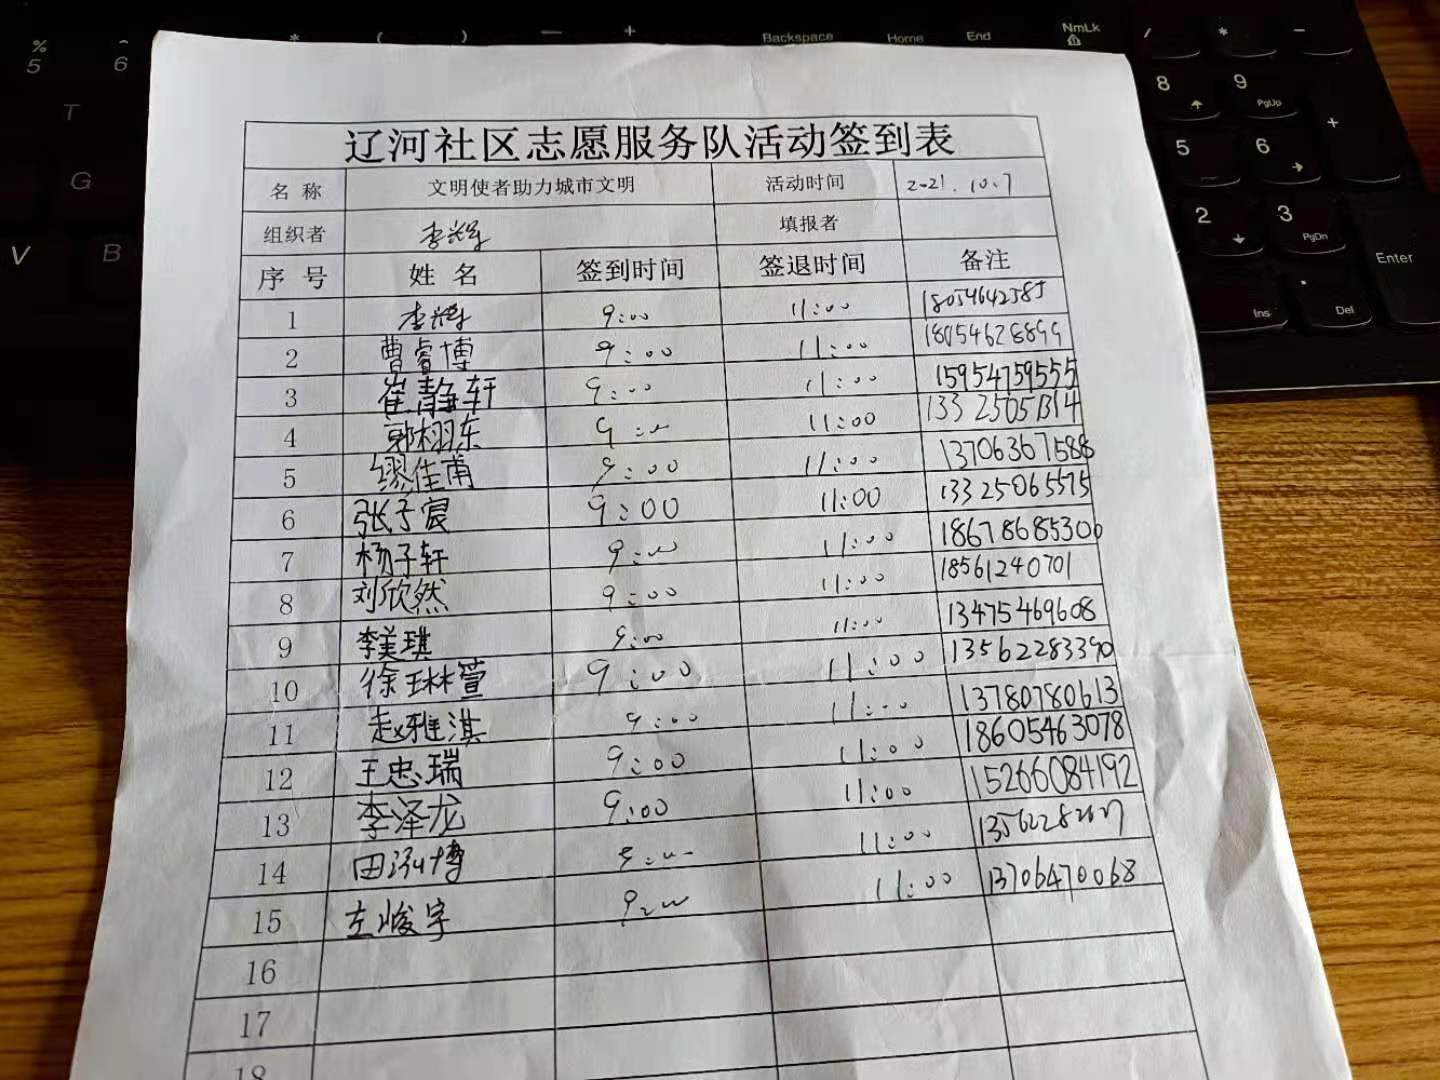 辽河社区志愿服务队活动签到表
名 称 文明使者助力城市文明 活动时间 2021.10.7
组织者 李辉 填报者
序 号 姓 名 签到时间 签退时间 备注
1 李辉 9:00 11:00 18054642585
2 曹睿博 9:00 11:00 18054628899
3 崔静轩 9:00 11:00 15954759555
4 郭栩东 9:00 11:00 13325051314
5 缪佳甫 9:00 11:00 13706367588
6 张子宸 9:00 11:00 13325065575
7 杨子轩 9:00 11:00 18678685300
8 刘欣然 9:00 11:00 18561240701
9 李美琪 9:00 11:00 13475469608
10 徐琳萱 9:00 11:00 13562283390
11 赵雅淇 9:00 11:00 13780780613
12 王忠瑞 9:00 11:00 18605463078
13 李泽龙 9:00 11:00 15266084192
14 田泓博 9:00 11:00
15 左峻宇 9:00 11:00 13706470068
16
17
18
% 5
6
T
G
V B
Backspace Home End NmLk
/ * -
8 9 PgUp +
5 6
2 3 PgDn
Enter
Ins . Del